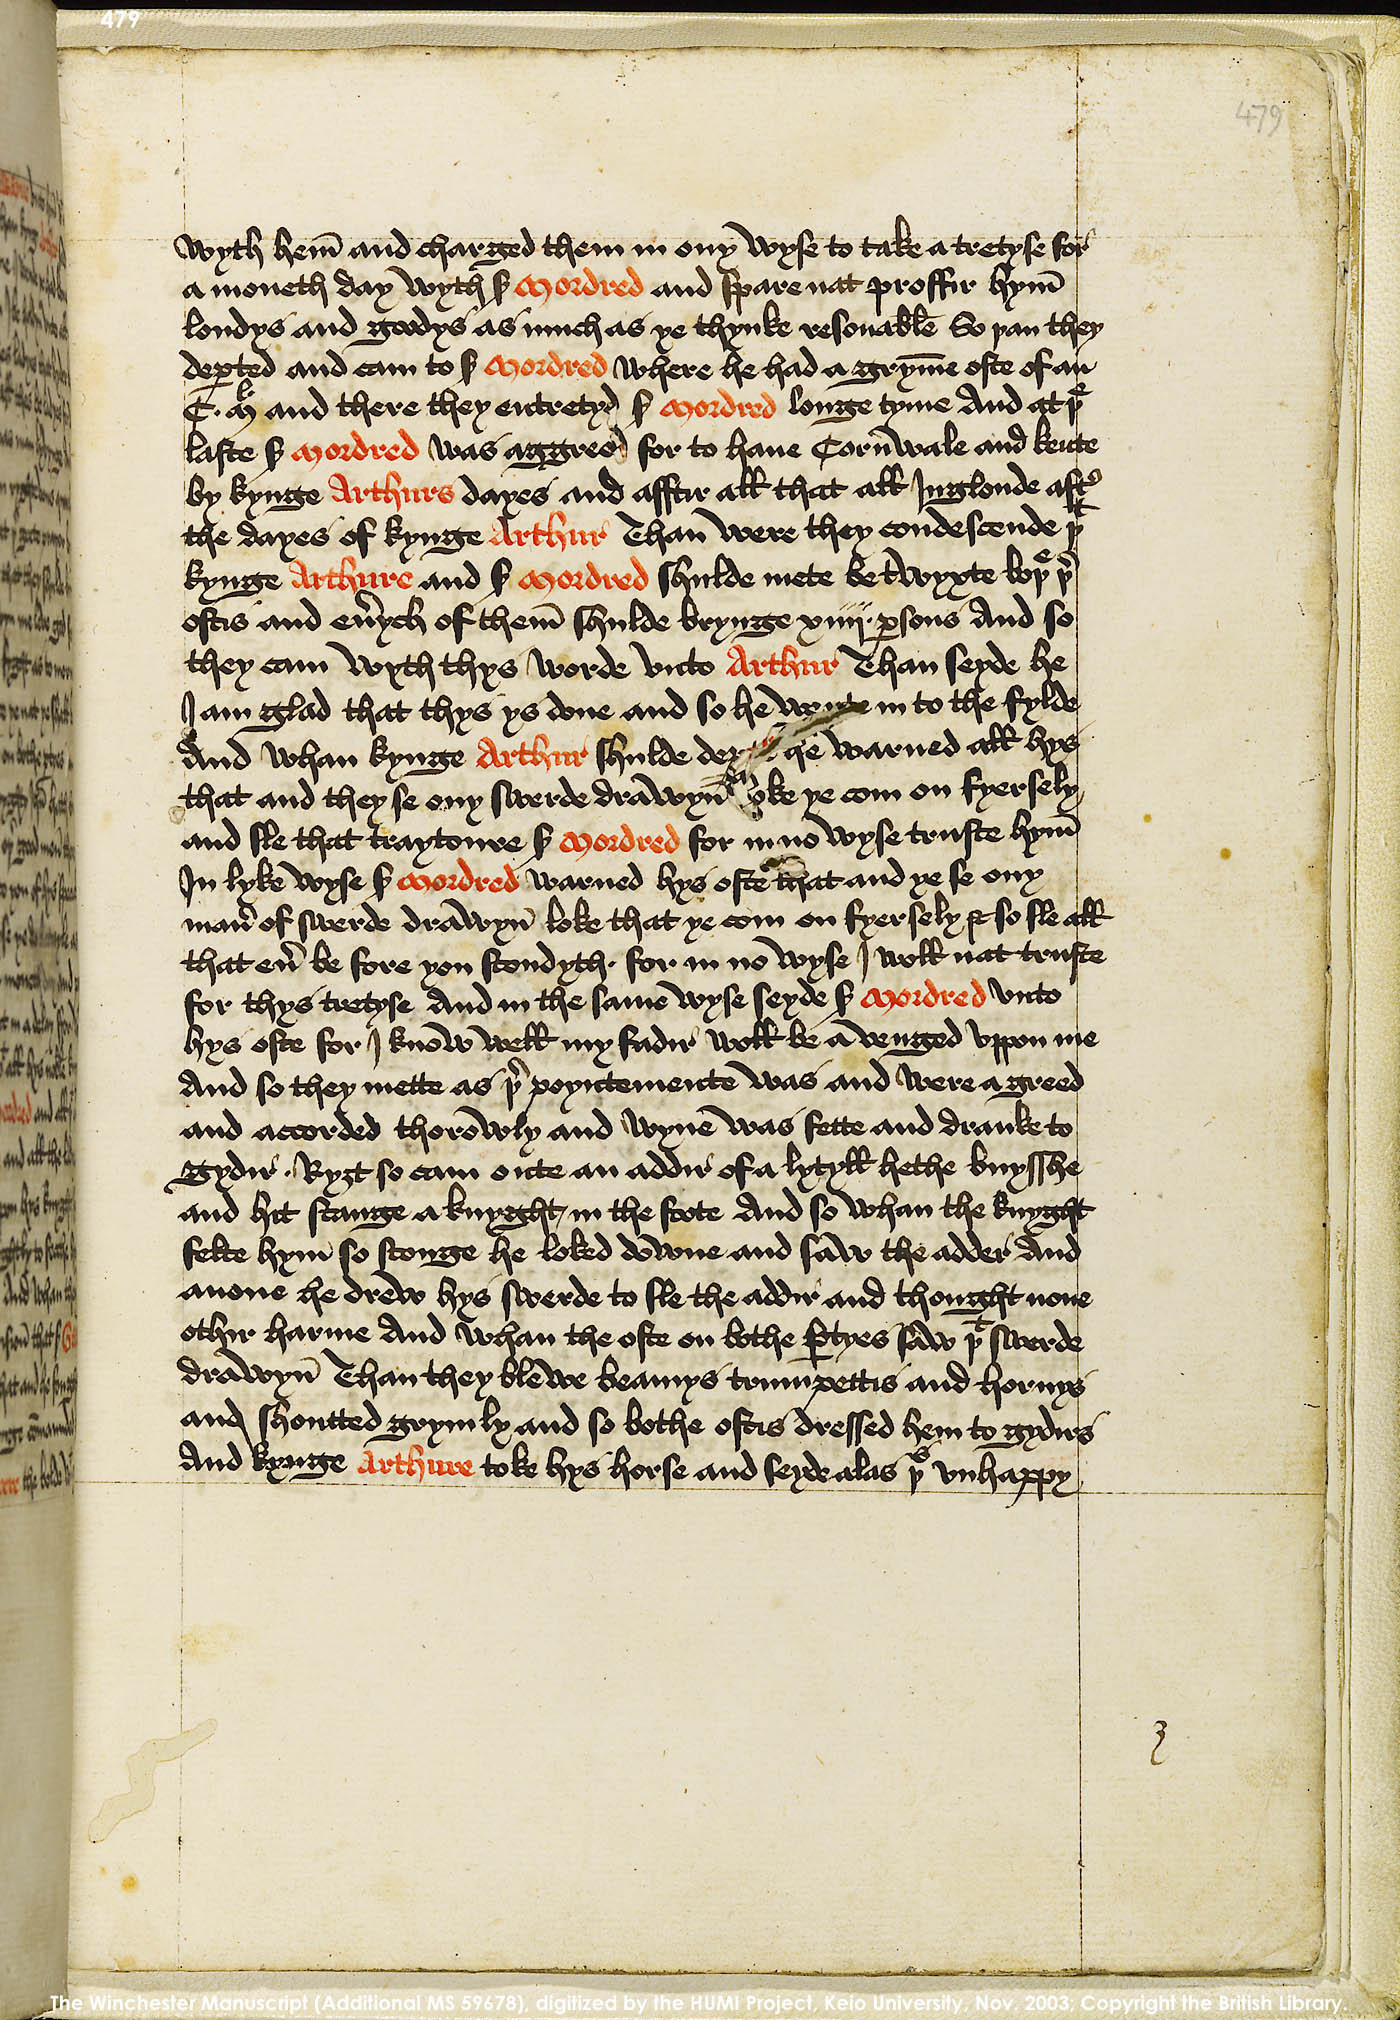 479
479
wyth hem̄ and charged them in ony wyse to take a tretyse for
a moneth day wyth ẜ Mordred and spare nat proffir hym̄
londys and goodys as much as ye thynke resonable So þan they
deꝑted and cam to ẜ Mordred where he had a gryme oste of an
C. Mˡ and there they entretyd ẜ Mordred longe tyme And at þᵉ
laste ẜ Mordred was aggreed for to haue Cornwale and kente
by kynge Arthurs dayes and afftir all that all Inglonde aftʳ
the dayes of kynge Arthur Than were they condescende þᵗ
kynge Arthure and ẜ Mordred shulde mete be twyxte boþᵉ þʳ
ostis and eṽych of them̄ shulde brynge xiiij. ꝑsons And so
they cam wyth thys worde vnto Arthur Than seyde he
I am glad that thys ys done and so he wente in to the fylde
And whan kynge Arthur shulde he warned all hys
that and they se ony swerde drawyn̄ loke ye com on fyersely
and sle that traytoure ẜ Mordred for in no wyse truste hym̄
In lyke wyse ẜ Mordred warned hys oste that and ye se ony
man̄ of swerde drawyn̄ loke that ye com on fyersely & so sle all
that eṽ be fore you stondyth. for in no wyse I woll nat truste
for thys tretyse And in the same wyse seyde ẜ Mordred vnto
hys oste for I know well my fadir woll be a venged vppon me
And so they mette as þʳ poyntemente was and were agreed
and accorded thorowly and wyne was fette and dranke to
gydir. Ryȝt so cam oute an addir of a lytyll hethe buysshe
and hit stange a knyght in the foote And so whan the knyght
felte hym so stonge he loked downe and saw the adder And
anone he drew hys swerde to sle the addir and thought none
othir harme And whan the oste on bothe ꝑtyes saw þᵗ swerde
drawyn̄ Than they blewe beamys trumpettis and hornys
and shoutted grymly and so bothe ostis dressed hem to gydirs
And kynge Arthure toke hys horse and seyde alas þⁱˢ vnhappy
The Winchester Manuscript (Additional MS 59678), digitized by the HUMI Project, Keio University, Nov. 2003; Copyright the British Library.